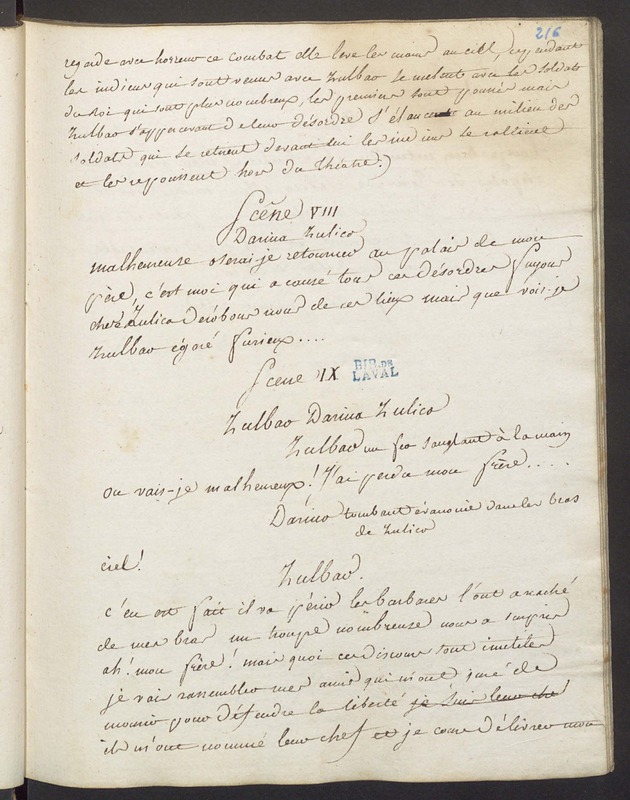 216
regarde avec horreur ce combat elle leve les mains au ciel, cependant
les indiens qui sont venus avec Zulbao se mettent avec les soldats
du Roi qui sont plus nombreux, les premiers sont mais
Zulbao s'appercevant de leur désordre s'élance au milieu des
soldats qui se retirent devant lui les indiens se rallient
et les repoussent hors du théatre.)
Scêne VIII
Darina Zulica
malheureuse oserai-je retourner au palais de mon
père, c'est moi qui a causé tous ces désordres fuyons
chere Zulica dérobons nous de ces lieux mais que vois-je
Zulbao égaré furieux....
Scene IX
BIB. DE
LAVAL
Zulbao Darina Zulica
Zulbao un fer sanglant à la main
ou vais-je malheureux! J'ai perdu mon frère.....
Darina tombant évanouie dans les bras
de Zulica
ciel!
Zulbao.
c'en est fait il va périr les barbares l'ont arraché
de mes bras un troupe nombreuse nous a
ah! mon frère! mais quoi ces discours sont inutiles
je vais rassembler mes amis qui m'ont juré de
mourir pour défendre la liberté je suis leur che
ils m'ont nommé leur chef et je cours délivrer mon